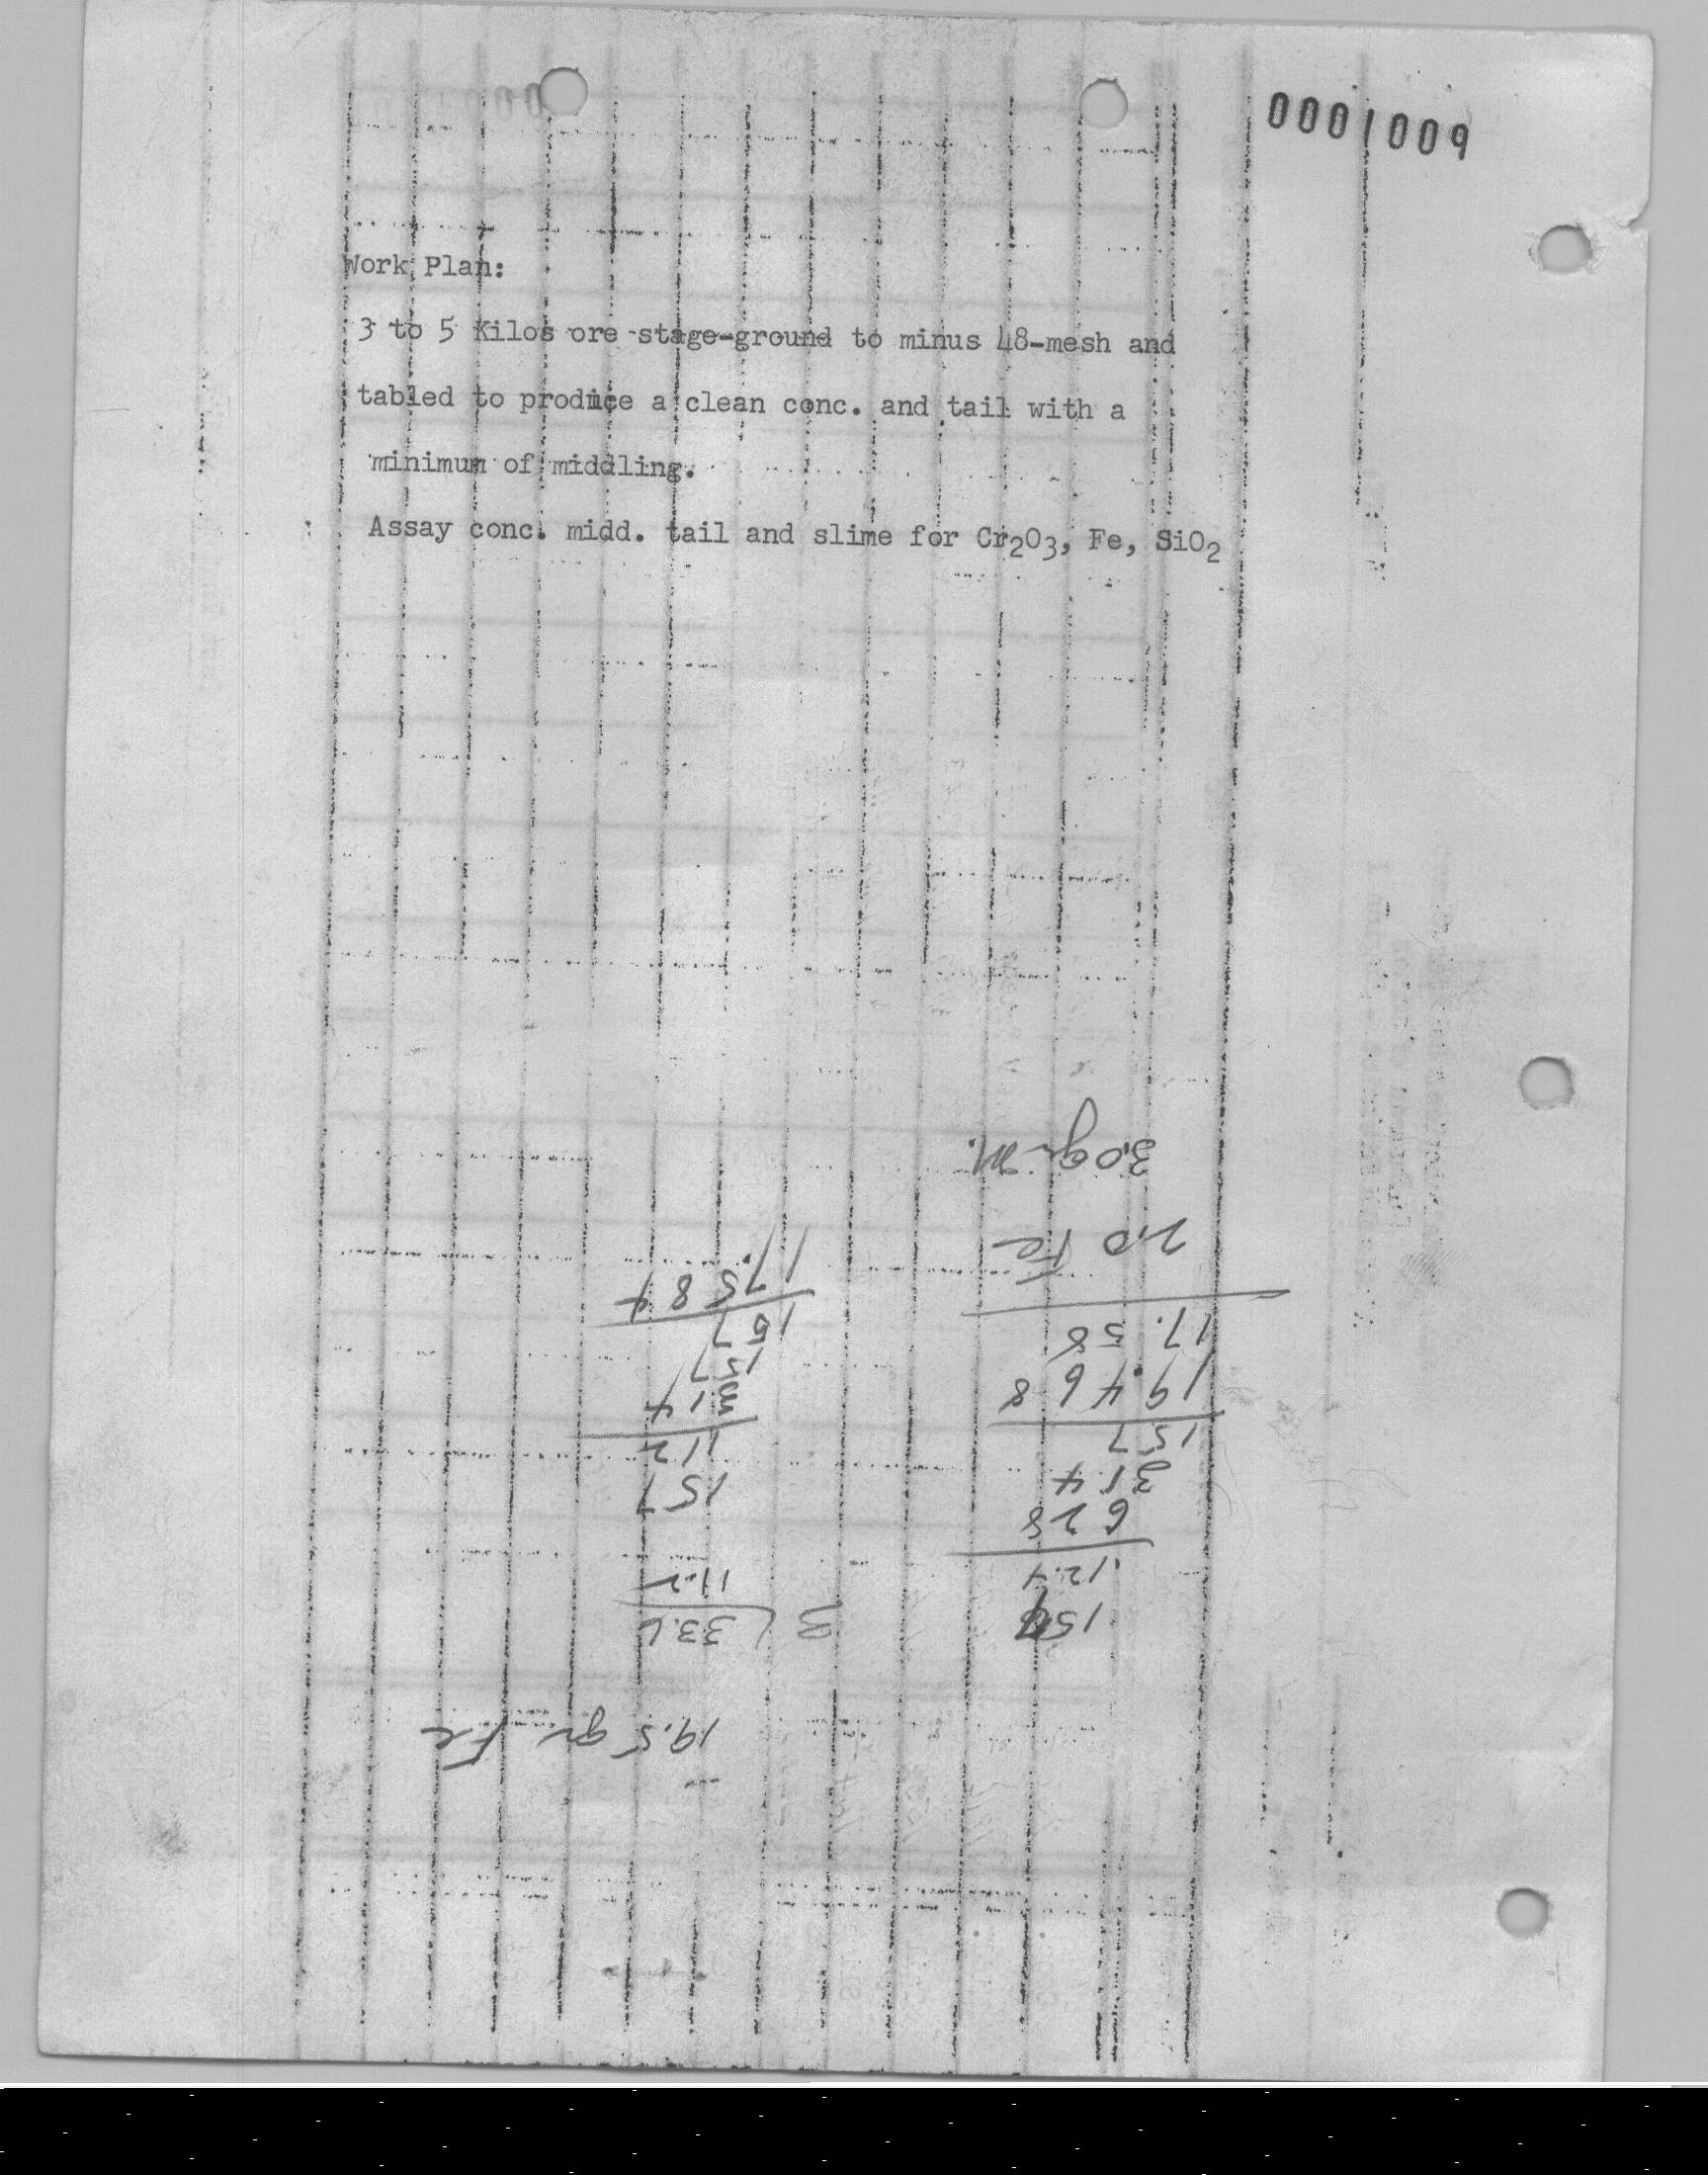 0001009
Work Plan:
3 to 5 Kilos ore stage-ground to minus 48-mesh and
tabled to produce a clean conc. and tail with a
minimum of middling.
Assay conc. midd. tail and slime for Cr2O3, Fe, SiO2
19.5 gr Fe
3 33.6
11.2
157
112
314
157
157
17584
157
12.4
628
314
157
19.468
17.58
2.0 Fe
3.0 gr M.